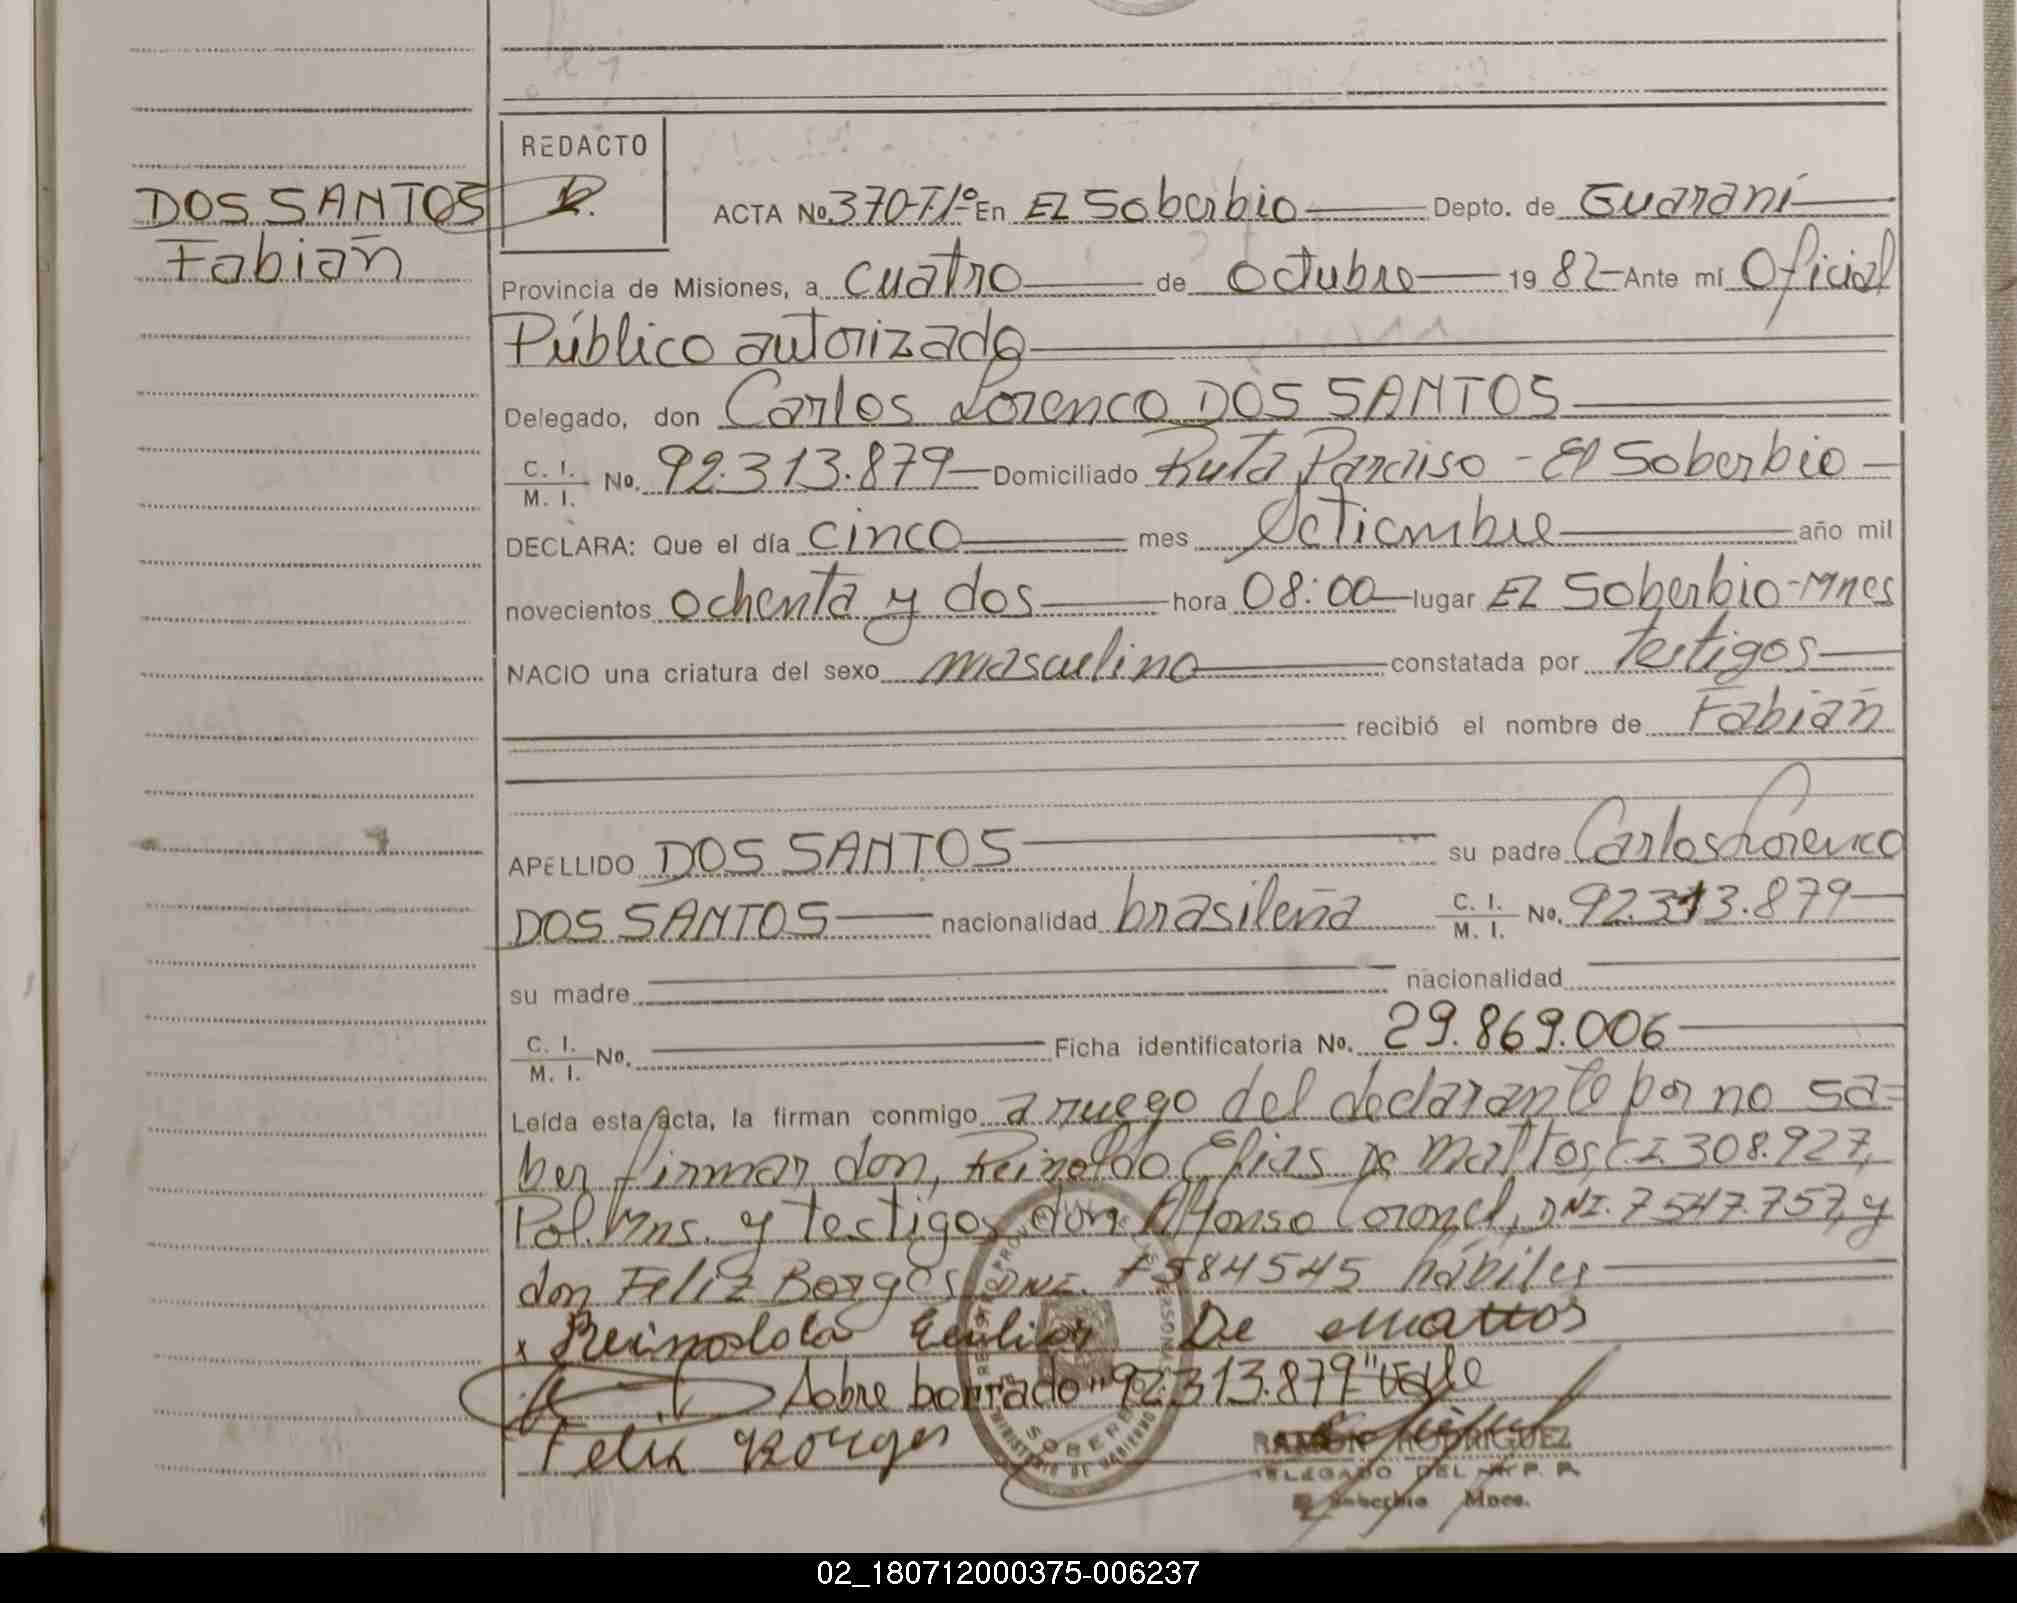 DOS SANTOS
Fabián
REDACTO
ACTA No. 370-T/1º En El Soberbio Depto. de Guaraní
Provincia de Misiones, a cuatro de octubre 19 82 Ante mí Oficial
Público autorizado
Delegado, don Carlos Lorenco DOS SANTOS
C. I.
M. I. No. 92.313.879 Domiciliado Ruta Paraiso - El Soberbio
DECLARA: Que el día cinco mes Setiembre año mil
novecientos ochenta y dos hora 08:00 lugar El Soberbio-Mnes
NACIO una criatura del sexo masculino constatada por testigos
recibió el nombre de Fabián
APELLIDO DOS SANTOS su padre Carlos Lorenco
DOS SANTOS nacionalidad brasileña C. I.
M. I. No. 92.313.879
su madre nacionalidad
C. I.
M. I. No. Ficha identificatoria No. 29.869.006
Leída esta acta, la firman conmigo a ruego del declarante por no sa=
ber firmar don, Reinoldo Elias De Mattos, C.I. 308.927,
Pol. Mns. y testigos don Alfonso Coronel, DNI. 7547.757, y
don Feliz Borges DNI. 7584545 hábiles
x Reinoldo De Mattos
Sobre borrado "92.313.879" Vale
Felix Borges
SOBERBIO
MINISTERIO DE GOBIERNO
RAMON RODRIGUEZ
DELEGADO DEL R. P. P.
El Soberbio Mnes.
02_180712000375-006237